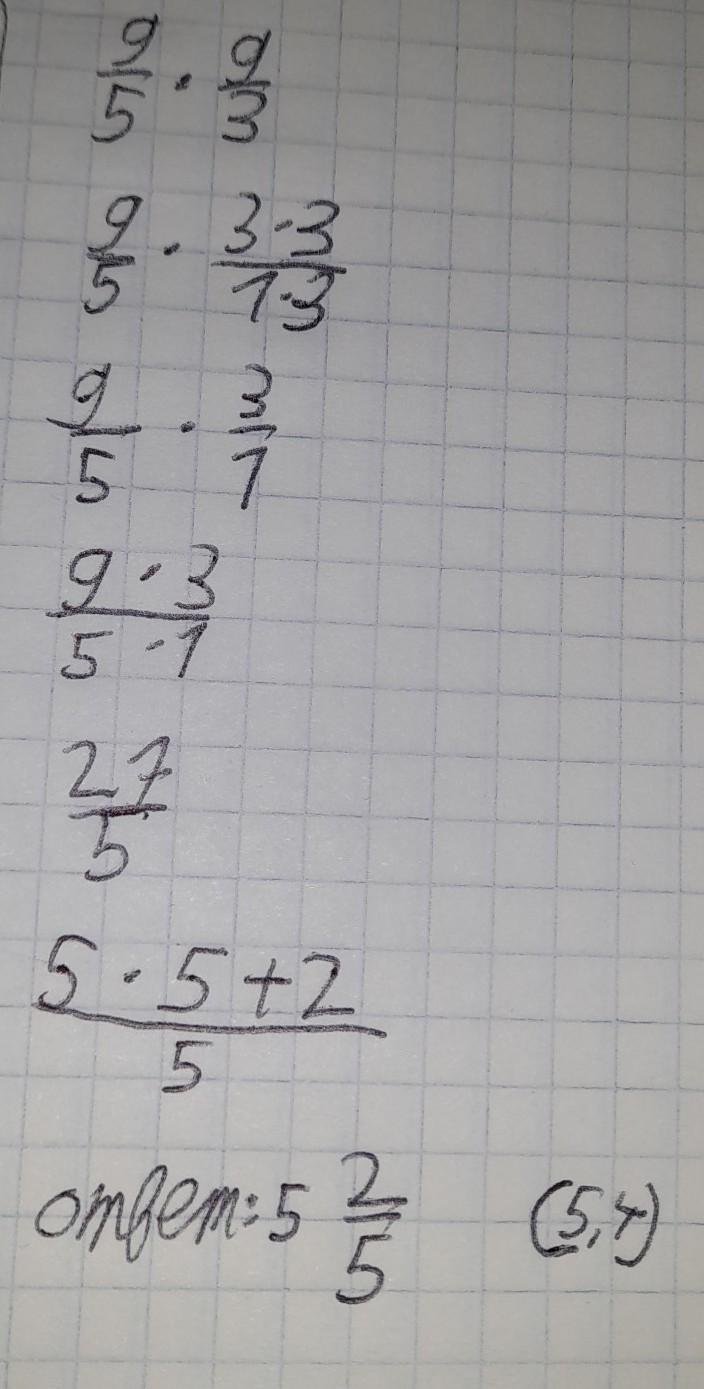 9/5 · 9/3
9/5 · 3·3/1·3
9/5 · 3/1
9·3/5·1
27/5
5·5+2/5
ответ: 5 2/5 (5,4)